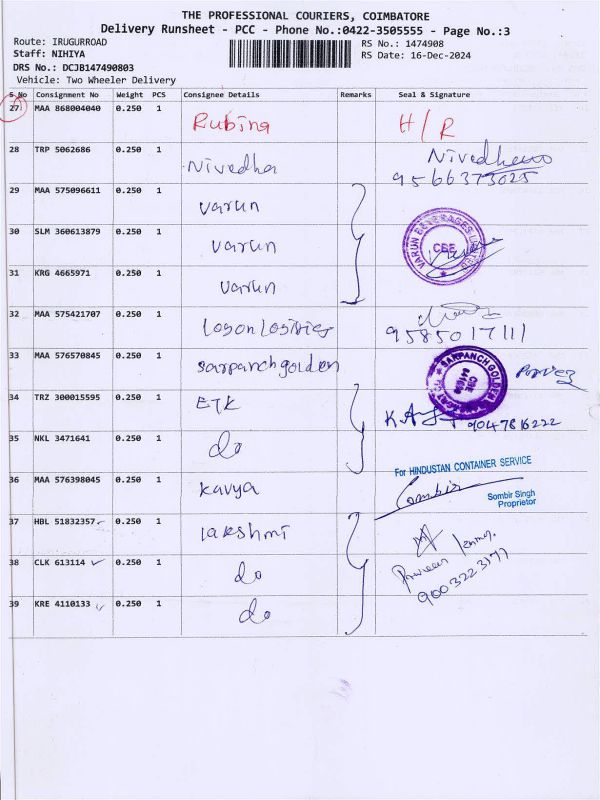 THE PROFESSIONAL COURIERS, COIMBATORE
Delivery Runsheet - PCC - Phone No.:0422-3505555 - Page No.:3
Route: IRUGURROAD
RS No.: 1474908
Staff: NIHIYA
RS Date: 16-Dec-2024
DRS No.: DCJB147490803
Vehicle: Two Wheeler Delivery
S.No Consignment No Weight PCS Consignee Details Remarks Seal & Signature
27 MAA 868004040 0.250 1 Rubina H/R
28 TRP 5062686 0.250 1 Nivedha
9566373025
29 MAA 575096611 0.250 1 varun
30 SLM 360613879 0.250 1 varun
VARUN BEVERAGES LIMITED
CBE
31 KRG 4665971 0.250 1 varun
32 MAA 575421707 0.250 1
9585017111
33 MAA 576570845 0.250 1 sarpanch golden
SARPANCH GOLDEN
CBE
34 TRZ 300015595 0.250 1 ETK
9047816222
35 NKL 3471641 0.250 1 do
36 MAA 576398045 0.250 1 kavya
For HINDUSTAN CONTAINER SERVICE
Sombir
Sombir Singh
Proprietor
37 HBL 51832357 0.250 1 lakshmi
38 CLK 613114 0.250 1 do
39 KRE 4110133 0.250 1 do